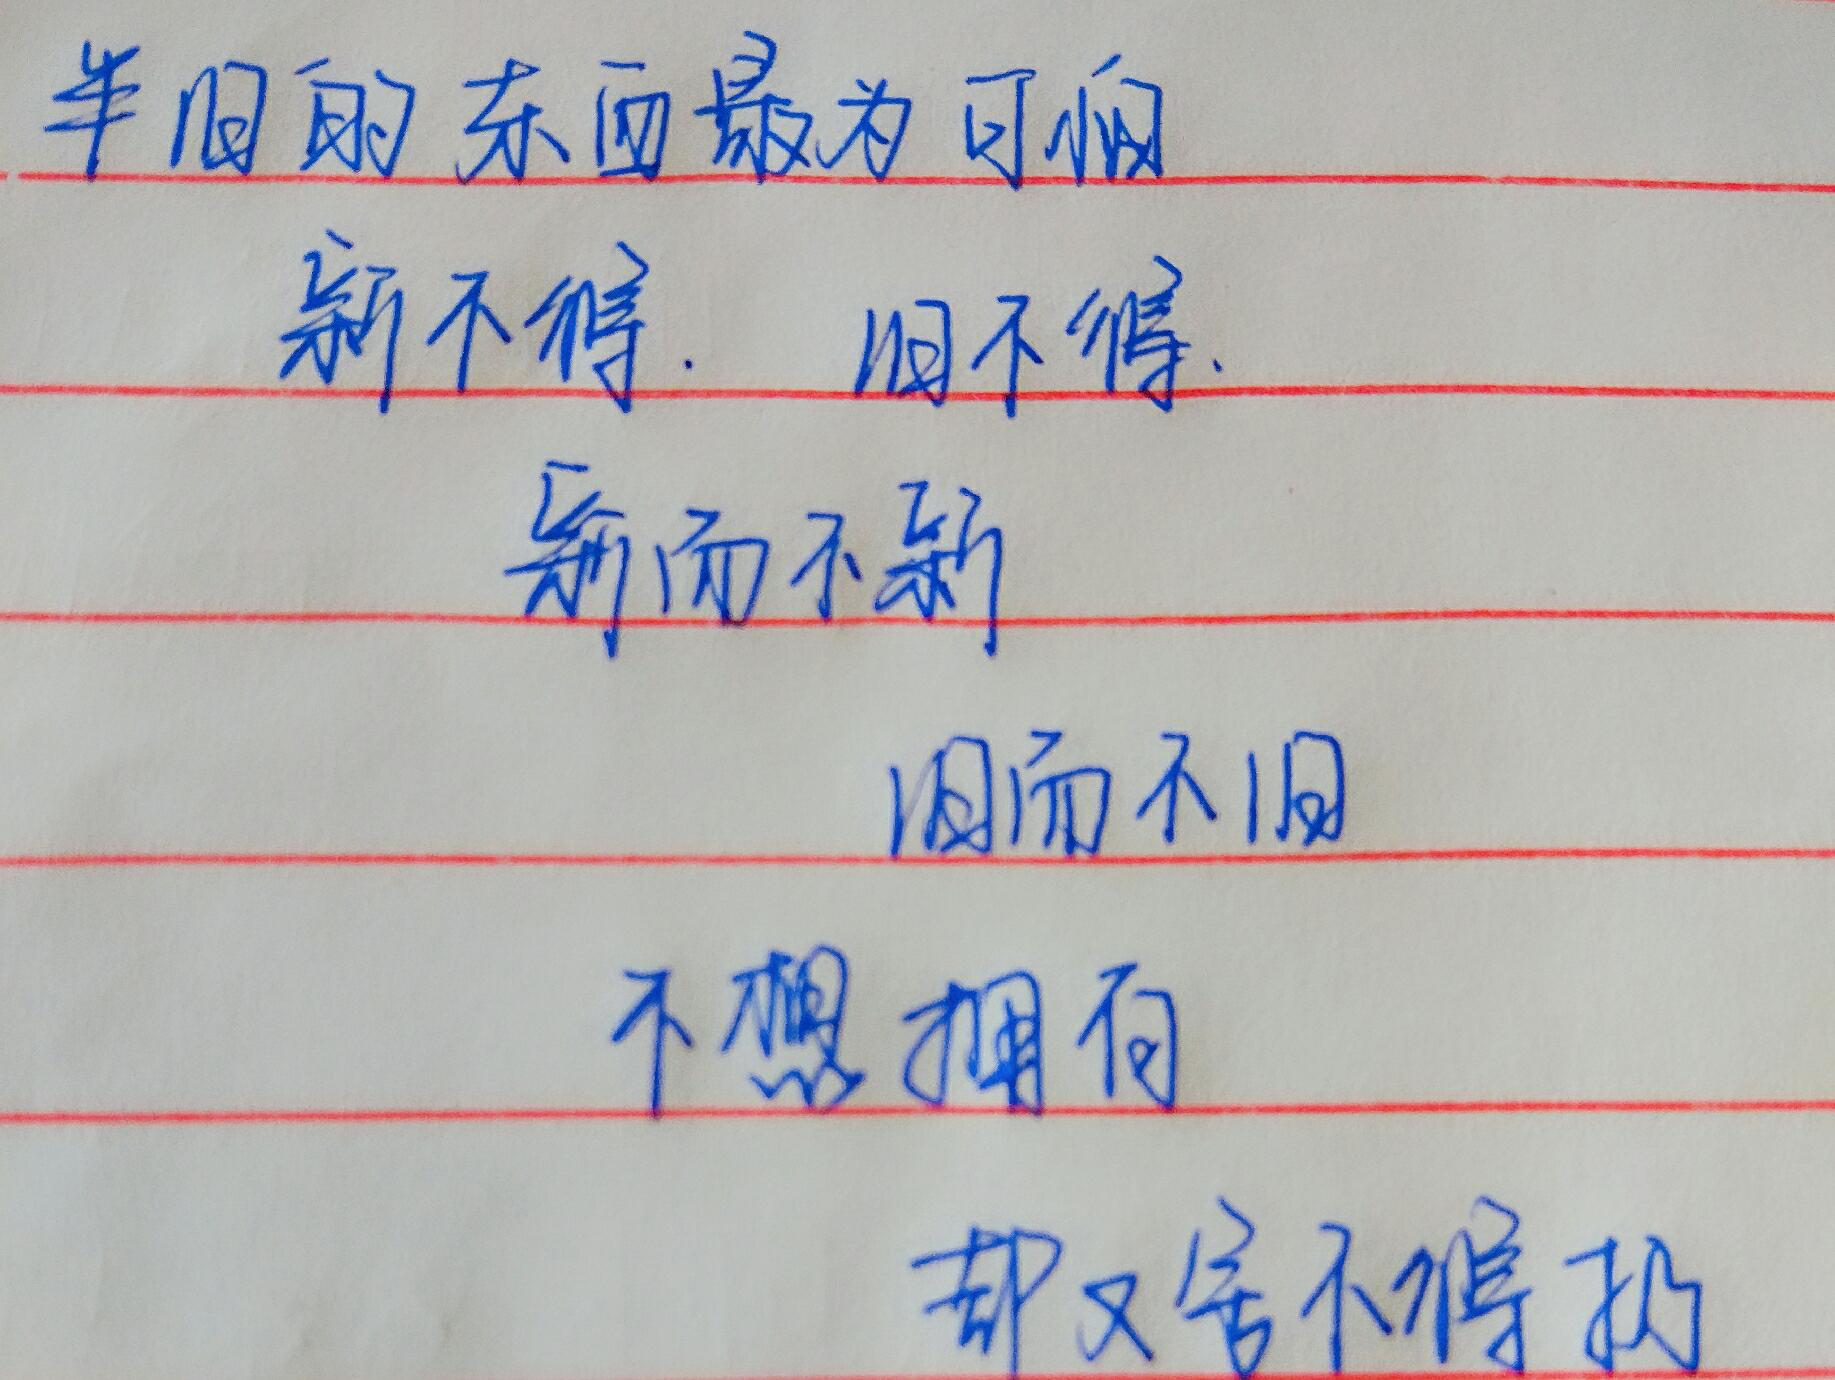 半旧的东西最为可怕
新不得. 旧不得.
新而不新
旧而不旧
不想拥有
却又舍不得扔